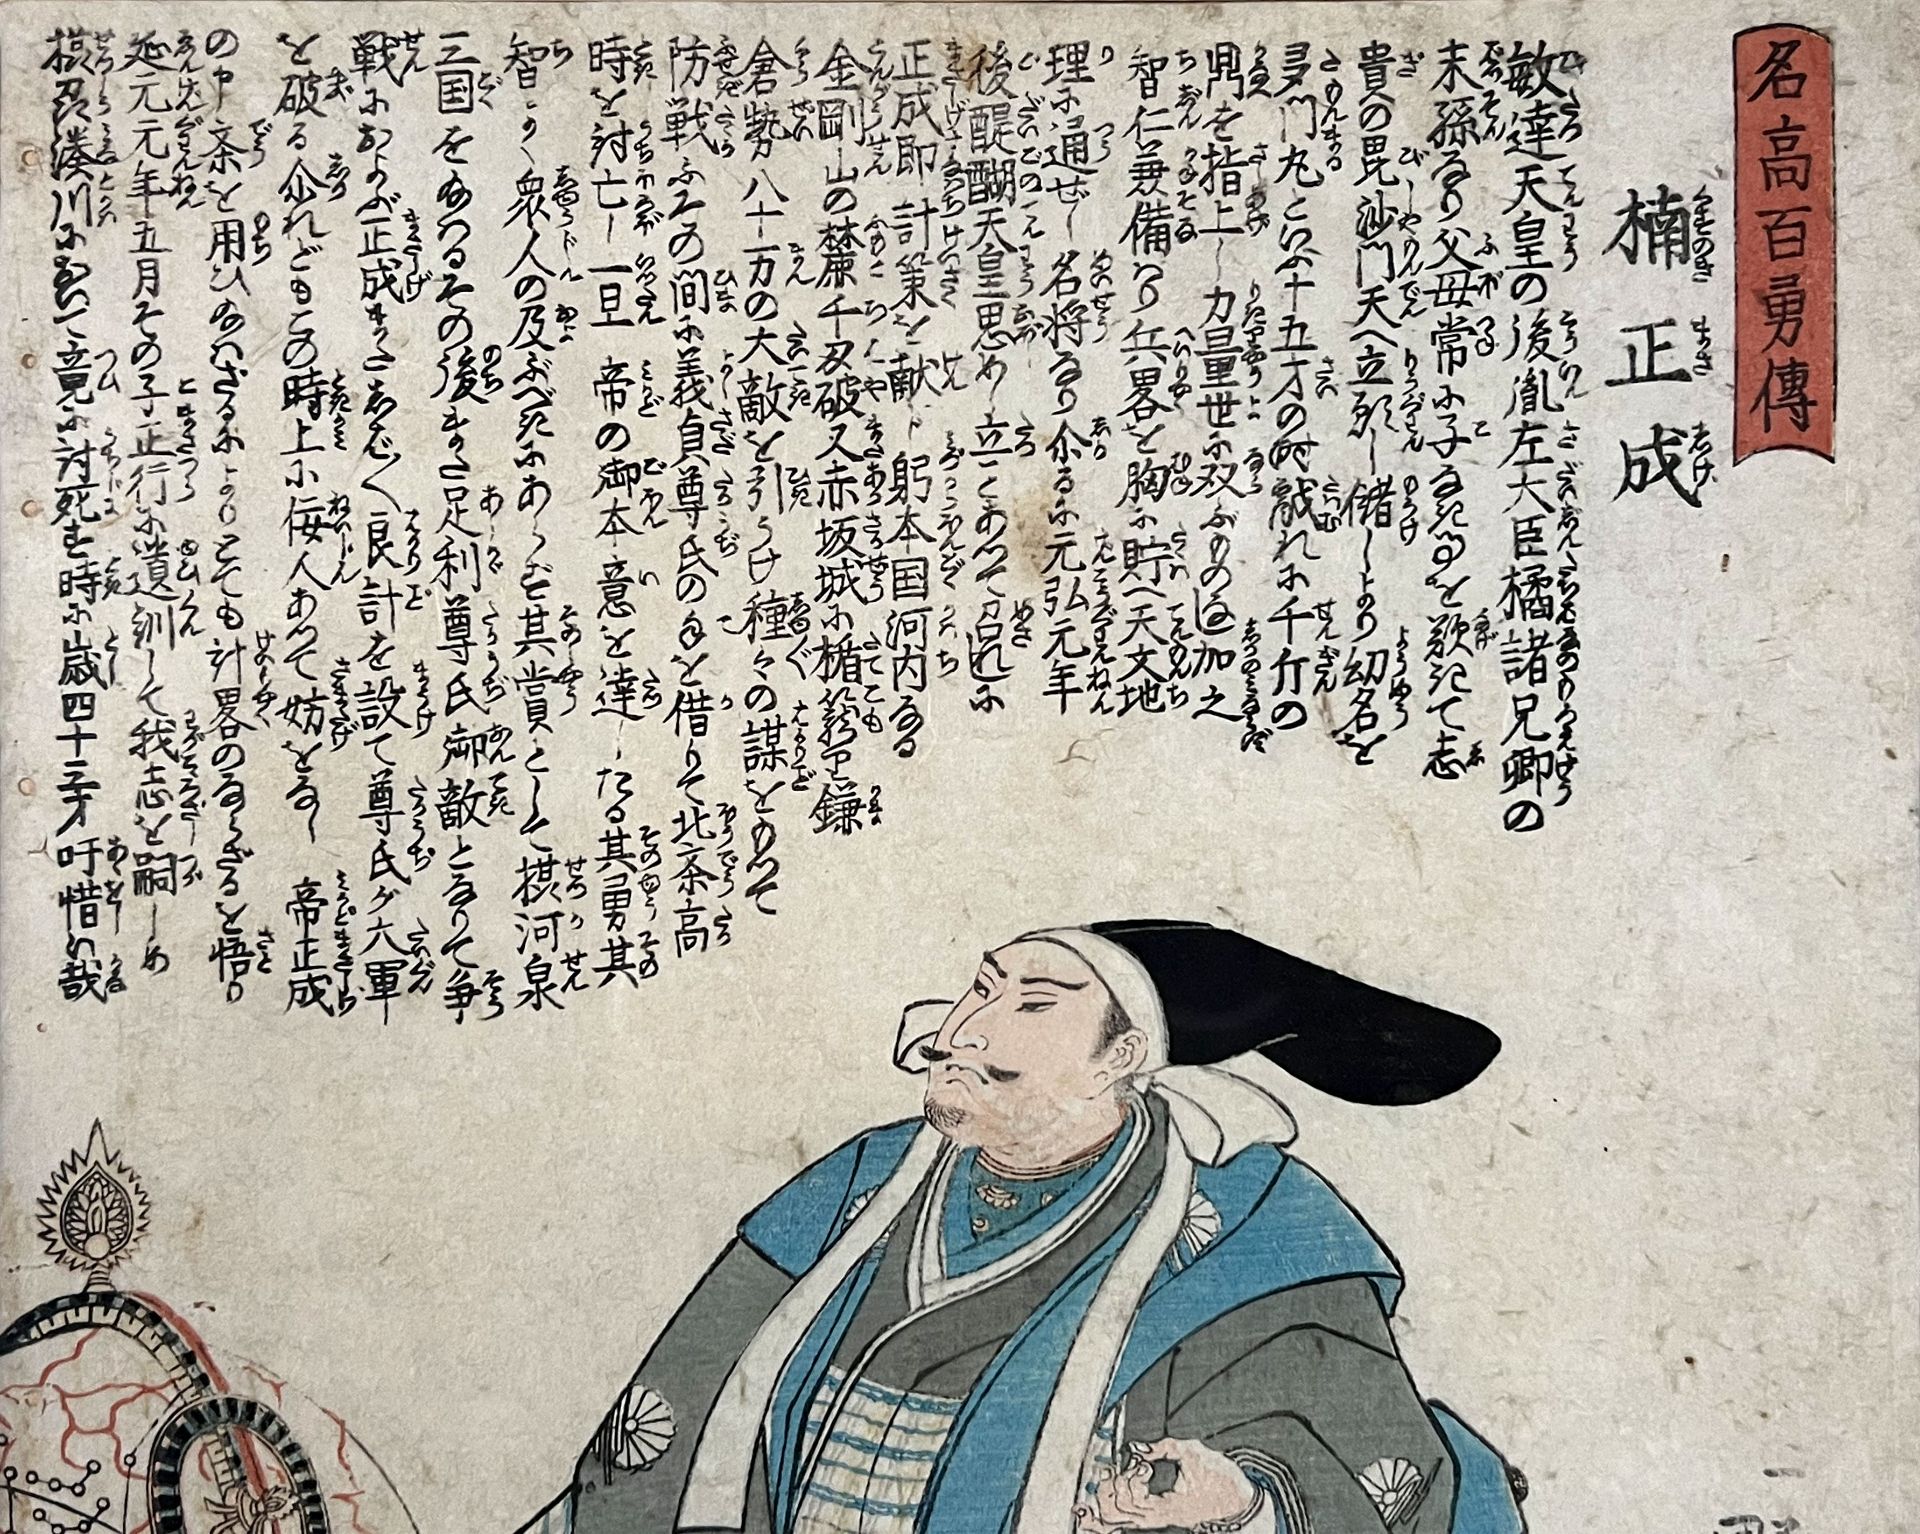 名高百勇傳
楠正成
敏達天皇の後胤左大臣橘諸兄卿の
末孫なり父母常に子なきを歎きて志
貴の毘沙門天へ立願し儲しより幼名を
多門丸といふ十五才の時戯れに千斤の
鼎を指上し力量世に双ぶものなし加之
智仁兼備はり兵畧を胸に貯へ天文地
理に通ぜし名将なり余るに元弘元年
後醍醐天皇思め立ことあつて召れに
正成即計策を献じ躬本国河内なる
金剛山の麓千刄破又赤坂城に楯籠里鎌
倉勢八十万の大敵を引うけ種々の謀をもつて
防戦ふその間に義貞尊氏の手を借りて北条高
時を討亡し一旦帝の御本意を達したる其勇其
智よく衆人の及ぶべきにあらず其賞として摂河泉
三国を給はるその後また足利尊氏御敵となりて争
戦におよぶ正成またしば〱良計を設て尊氏が大軍
を破る尒れどもこの時上に佞人あつて妨をなし帝正成
の申条を用ひ給はざるによりとても計畧のならざるを悟り
延元元年五月その子正行に遺訓して我志を嗣しめ
摂州湊川において竟に討死す時に歳四十三才吁惜い哉